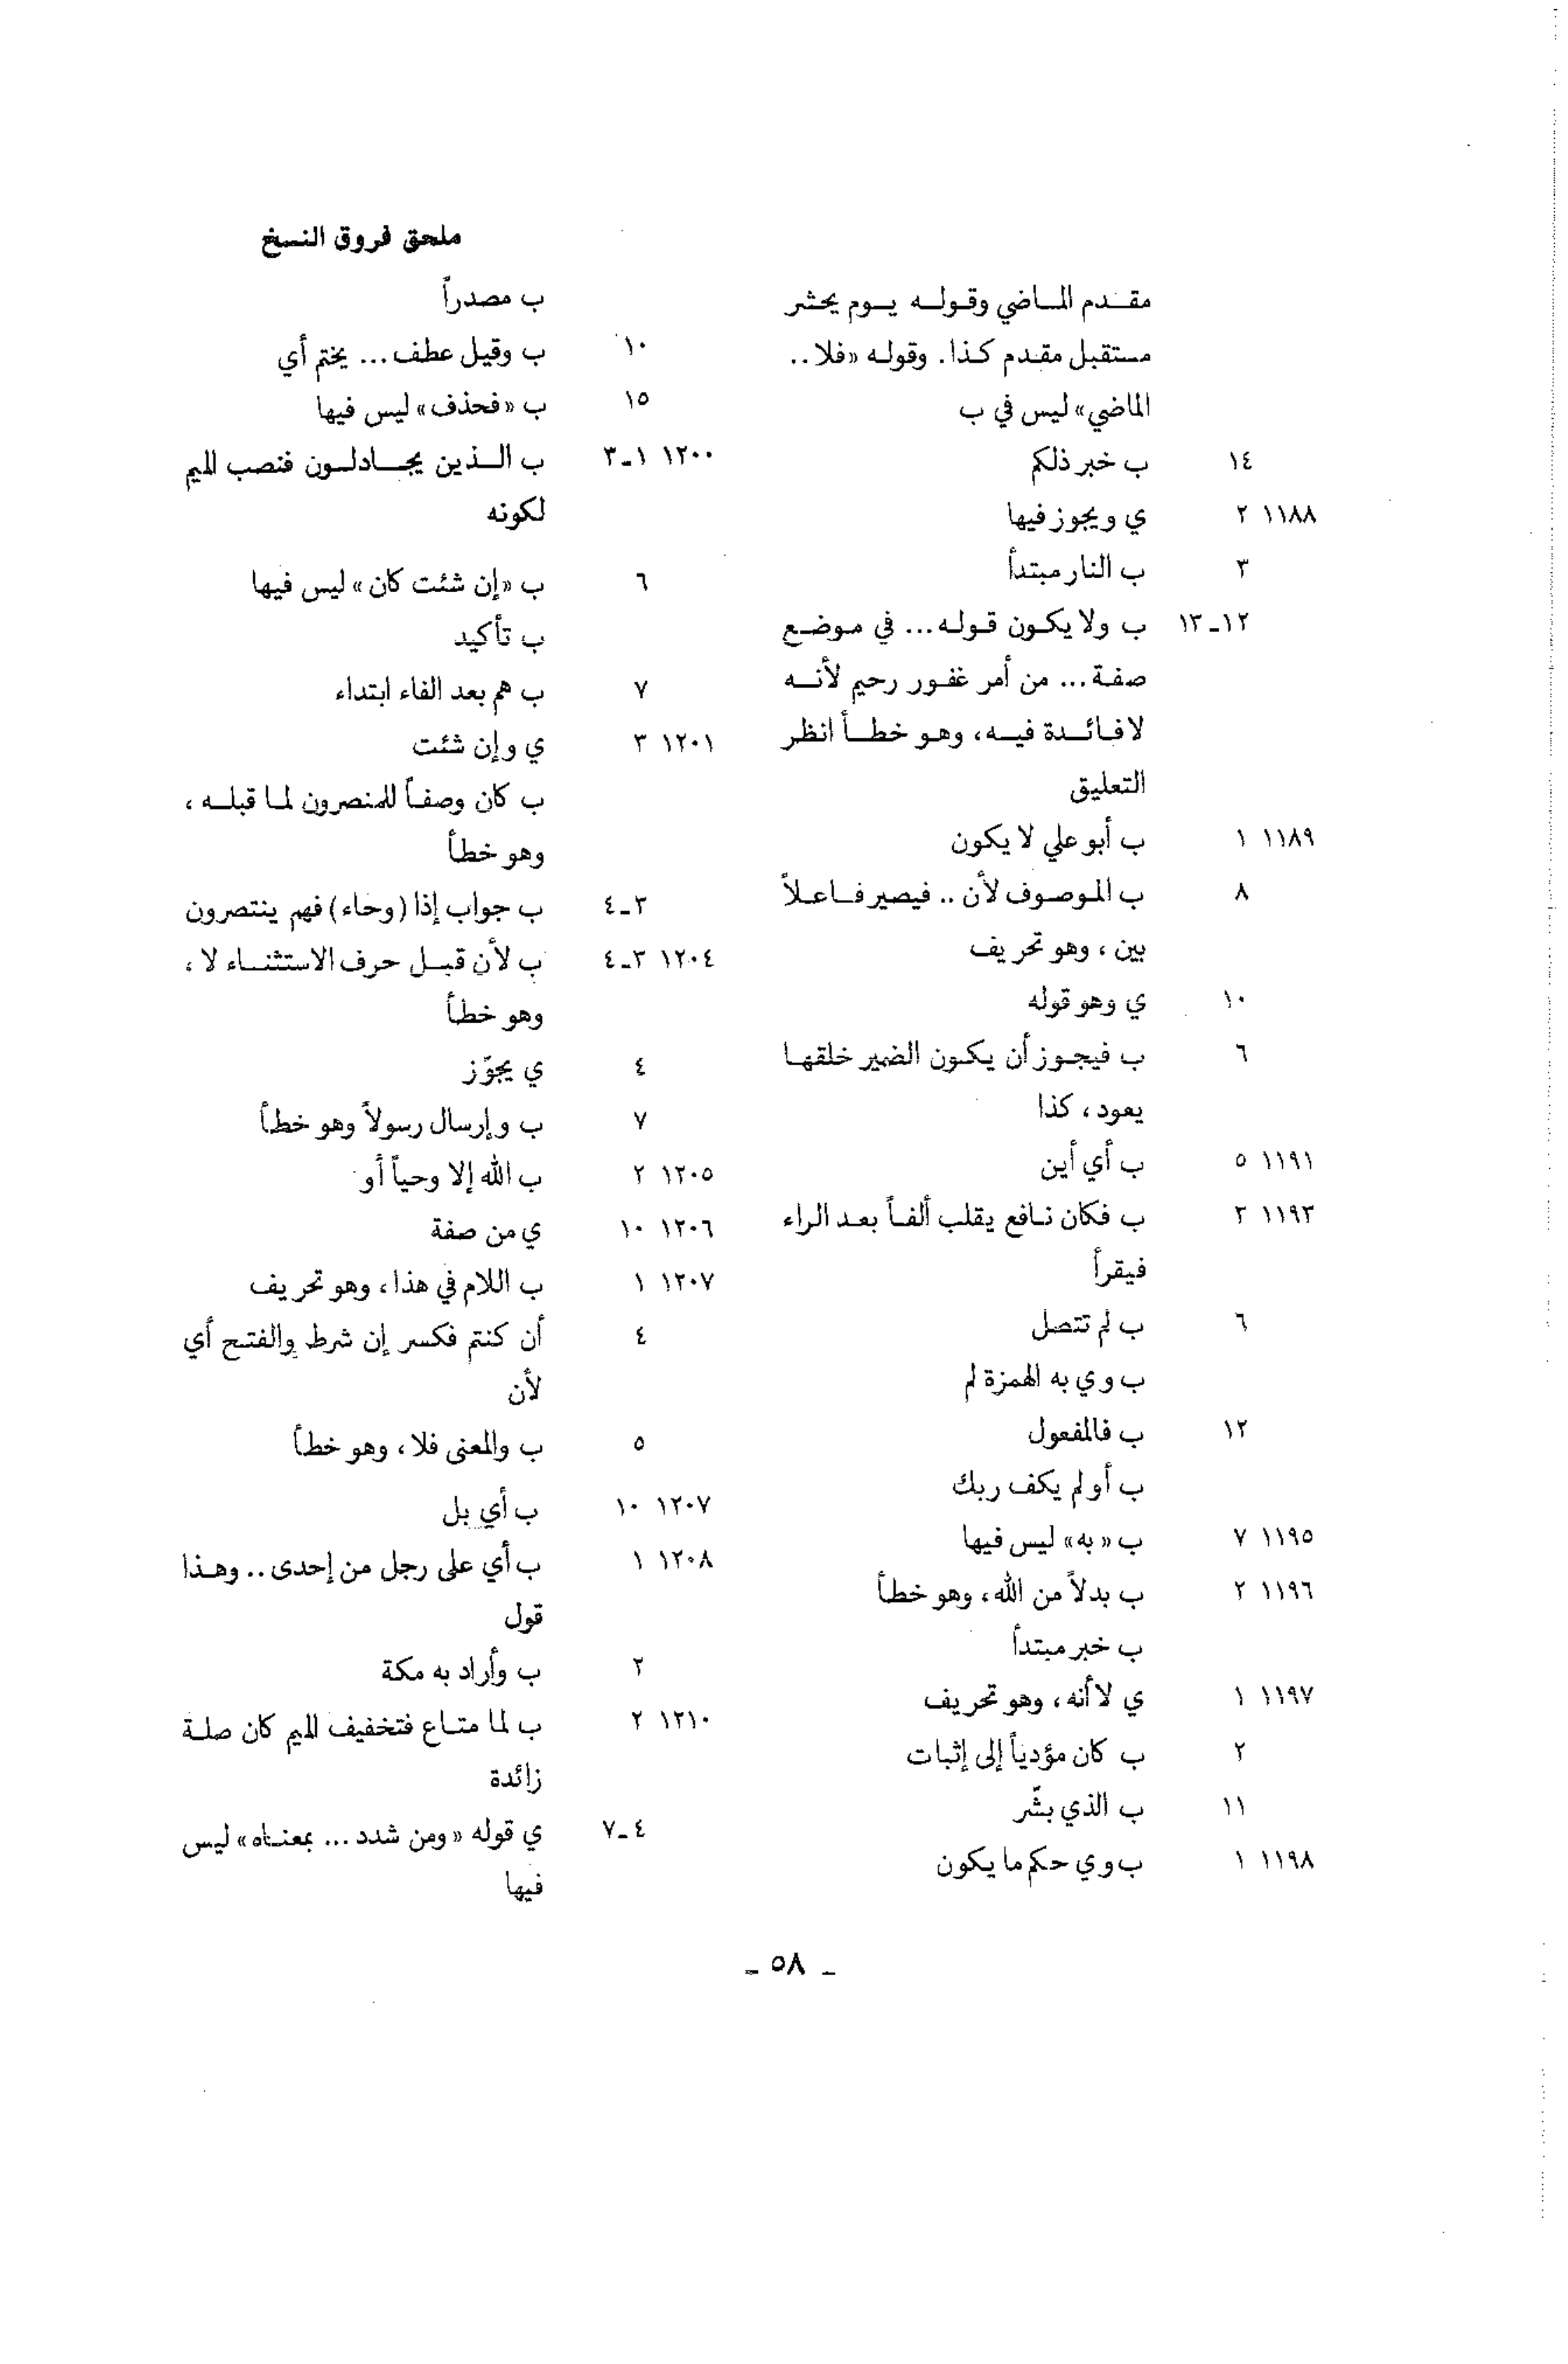 ملحق فروق النسخ
مقدم الماضي وقوله يوم يحشر
مستقبل مقدم كذا. وقوله «فلا..
الماضي» ليس في ب
١٤ ب خبر ذلكم
١١٨٨ ٢ ي ويجوز فيها
٣ ب النار مبتدأ
١٢-١٣ ب ولا يكون قوله... في موضع
صفة... من أمر غفور رحيم لأنه
لا فائدة فيه، وهو خطأ انظر
التعليق
١١٨٩ ١ ب أبو علي لا يكون
٨ ب الموصوف لأن .. فيصير فاعلاً
بين، وهو تحريف
١٠ ي وهو قوله
٦ ب فيجوز أن يكون الضير خلقها
يعود، كذا
١١٩١ ٥ ب أي أين
١١٩٣ ٢ ب فكان نافع يقلب ألفاً بعد الراء
فيقرأ
٦ ب لم تتصل
ب و ي به الهمزة لم
١٢ ب فالمفعول
ب أولم يكف ربك
١١٩٥ ٧ ب «به» ليس فيها
١١٩٦ ٢ ب بدلاً من الله، وهو خطأ
ب خبر مبتدأ
١١٩٧ ١ ي لاأنه، وهو تحريف
٢ ب كان مؤدياً إلى إثبات
١١ ب الذي بشّر
١١٩٨ ١ ب و ي حكم ما يكون
ب مصدراً
١٠ ب وقيل عطف... يختم أي
١٥ ب «فحذف» ليس فيها
١٢٠٠ ١-٣ ب الذين يجادلون فنصب الميم
لكونه
٦ ب «إن شئت كان» ليس فيها
ب تأكيد
٧ ب هم بعد الفاء ابتداء
١٢٠١ ٣ ي وإن شئت
ب كان وصفاً للمنصرون لما قبله،
وهو خطأ
٣-٤ ب جواب إذا (وحاء) فهم ينتصرون
١٢٠٤ ٣-٤ ب لأن قبل حرف الاستثناء لا،
وهو خطأ
٤ ي يجوّز
٧ ب وإرسال رسولاً وهو خطأ
١٢٠٥ ٢ ب الله إلا وحياً أو
١٢٠٦ ١٠ ي من صفة
١٢٠٧ ١ ب اللام في هذا، وهو تحريف
٤ أن كنتم فكسر إن شرط والفتح أي
لأن
٥ ب والمعنى فلا، وهو خطأ
١٢٠٧ ١٠ ب أي بل
١٢٠٨ ١ ب أي على رجل من إحدى.. وهذا
قول
٢ ب وأراد به مكة
١٢١٠ ٢ ب لما متاع فتخفيف الميم كان صلة
زائدة
٤-٧ ي قوله «ومن شدد... بمعناه» ليس
فيها
- ٥٨ -